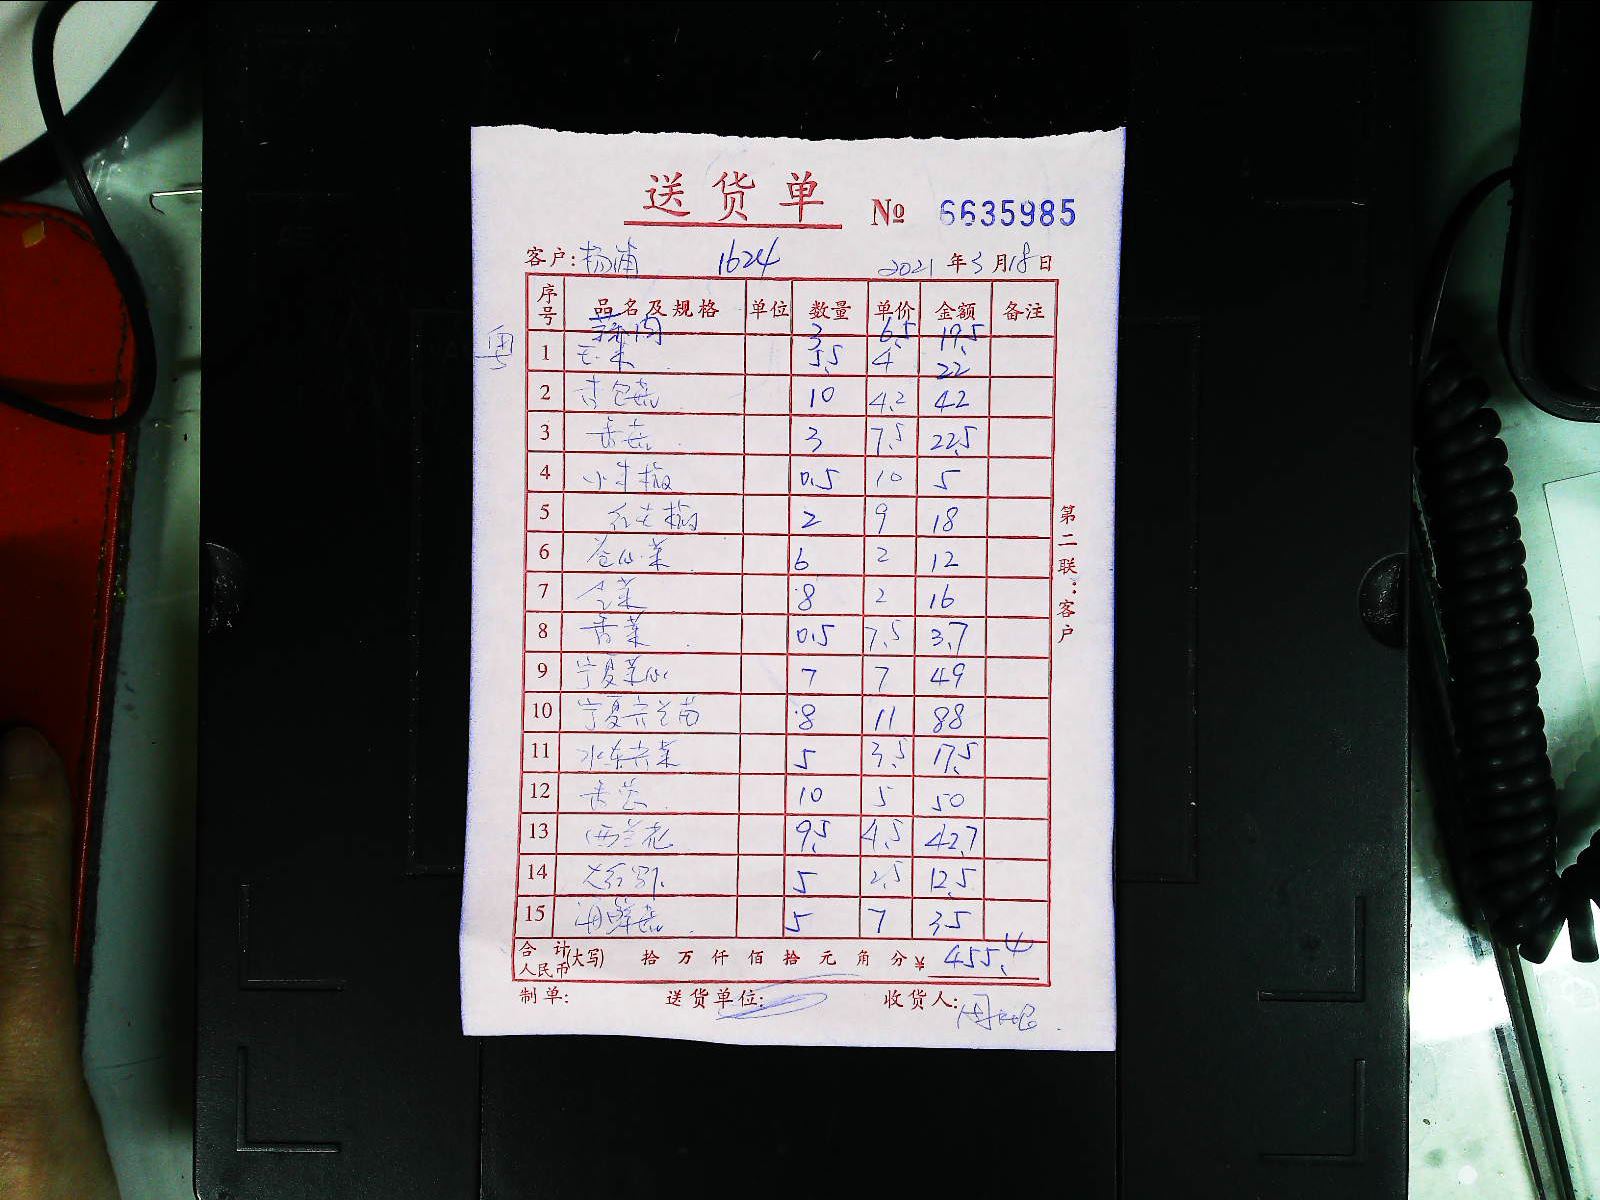 送货单 № 6635985
客户: 杨浦 1624 2021年3月18日
序号 品名及规格 单位 数量 单价 金额 备注
蒜肉 3 6.5 19.5
粤
1 毛菜 5.5 4 22
2 杏包菇 10 4.2 42
3 香菇 3 7.5 22.5
4 小米椒 0.5 10 5
5 红尖椒 2 9 18
6 卷心菜 6 2 12
7 2 8 16
8 香菜 0.5 7.5 3.7
9 宁夏菜心 7 7 49
10 宁夏芥兰苗 8 11 88
11 水东芥菜 5 3.5 17.5
12 香芹 10 5 50
13 西兰花 9.5 4.5 42.7
14 5 2.5 12.5
15 海鲜菇 5 7 35
第二联:客户
合计人民币(大写) 拾 万 仟 佰 拾 元 角 分 ¥ 455.4
制单: 送货单位: 收货人: 周